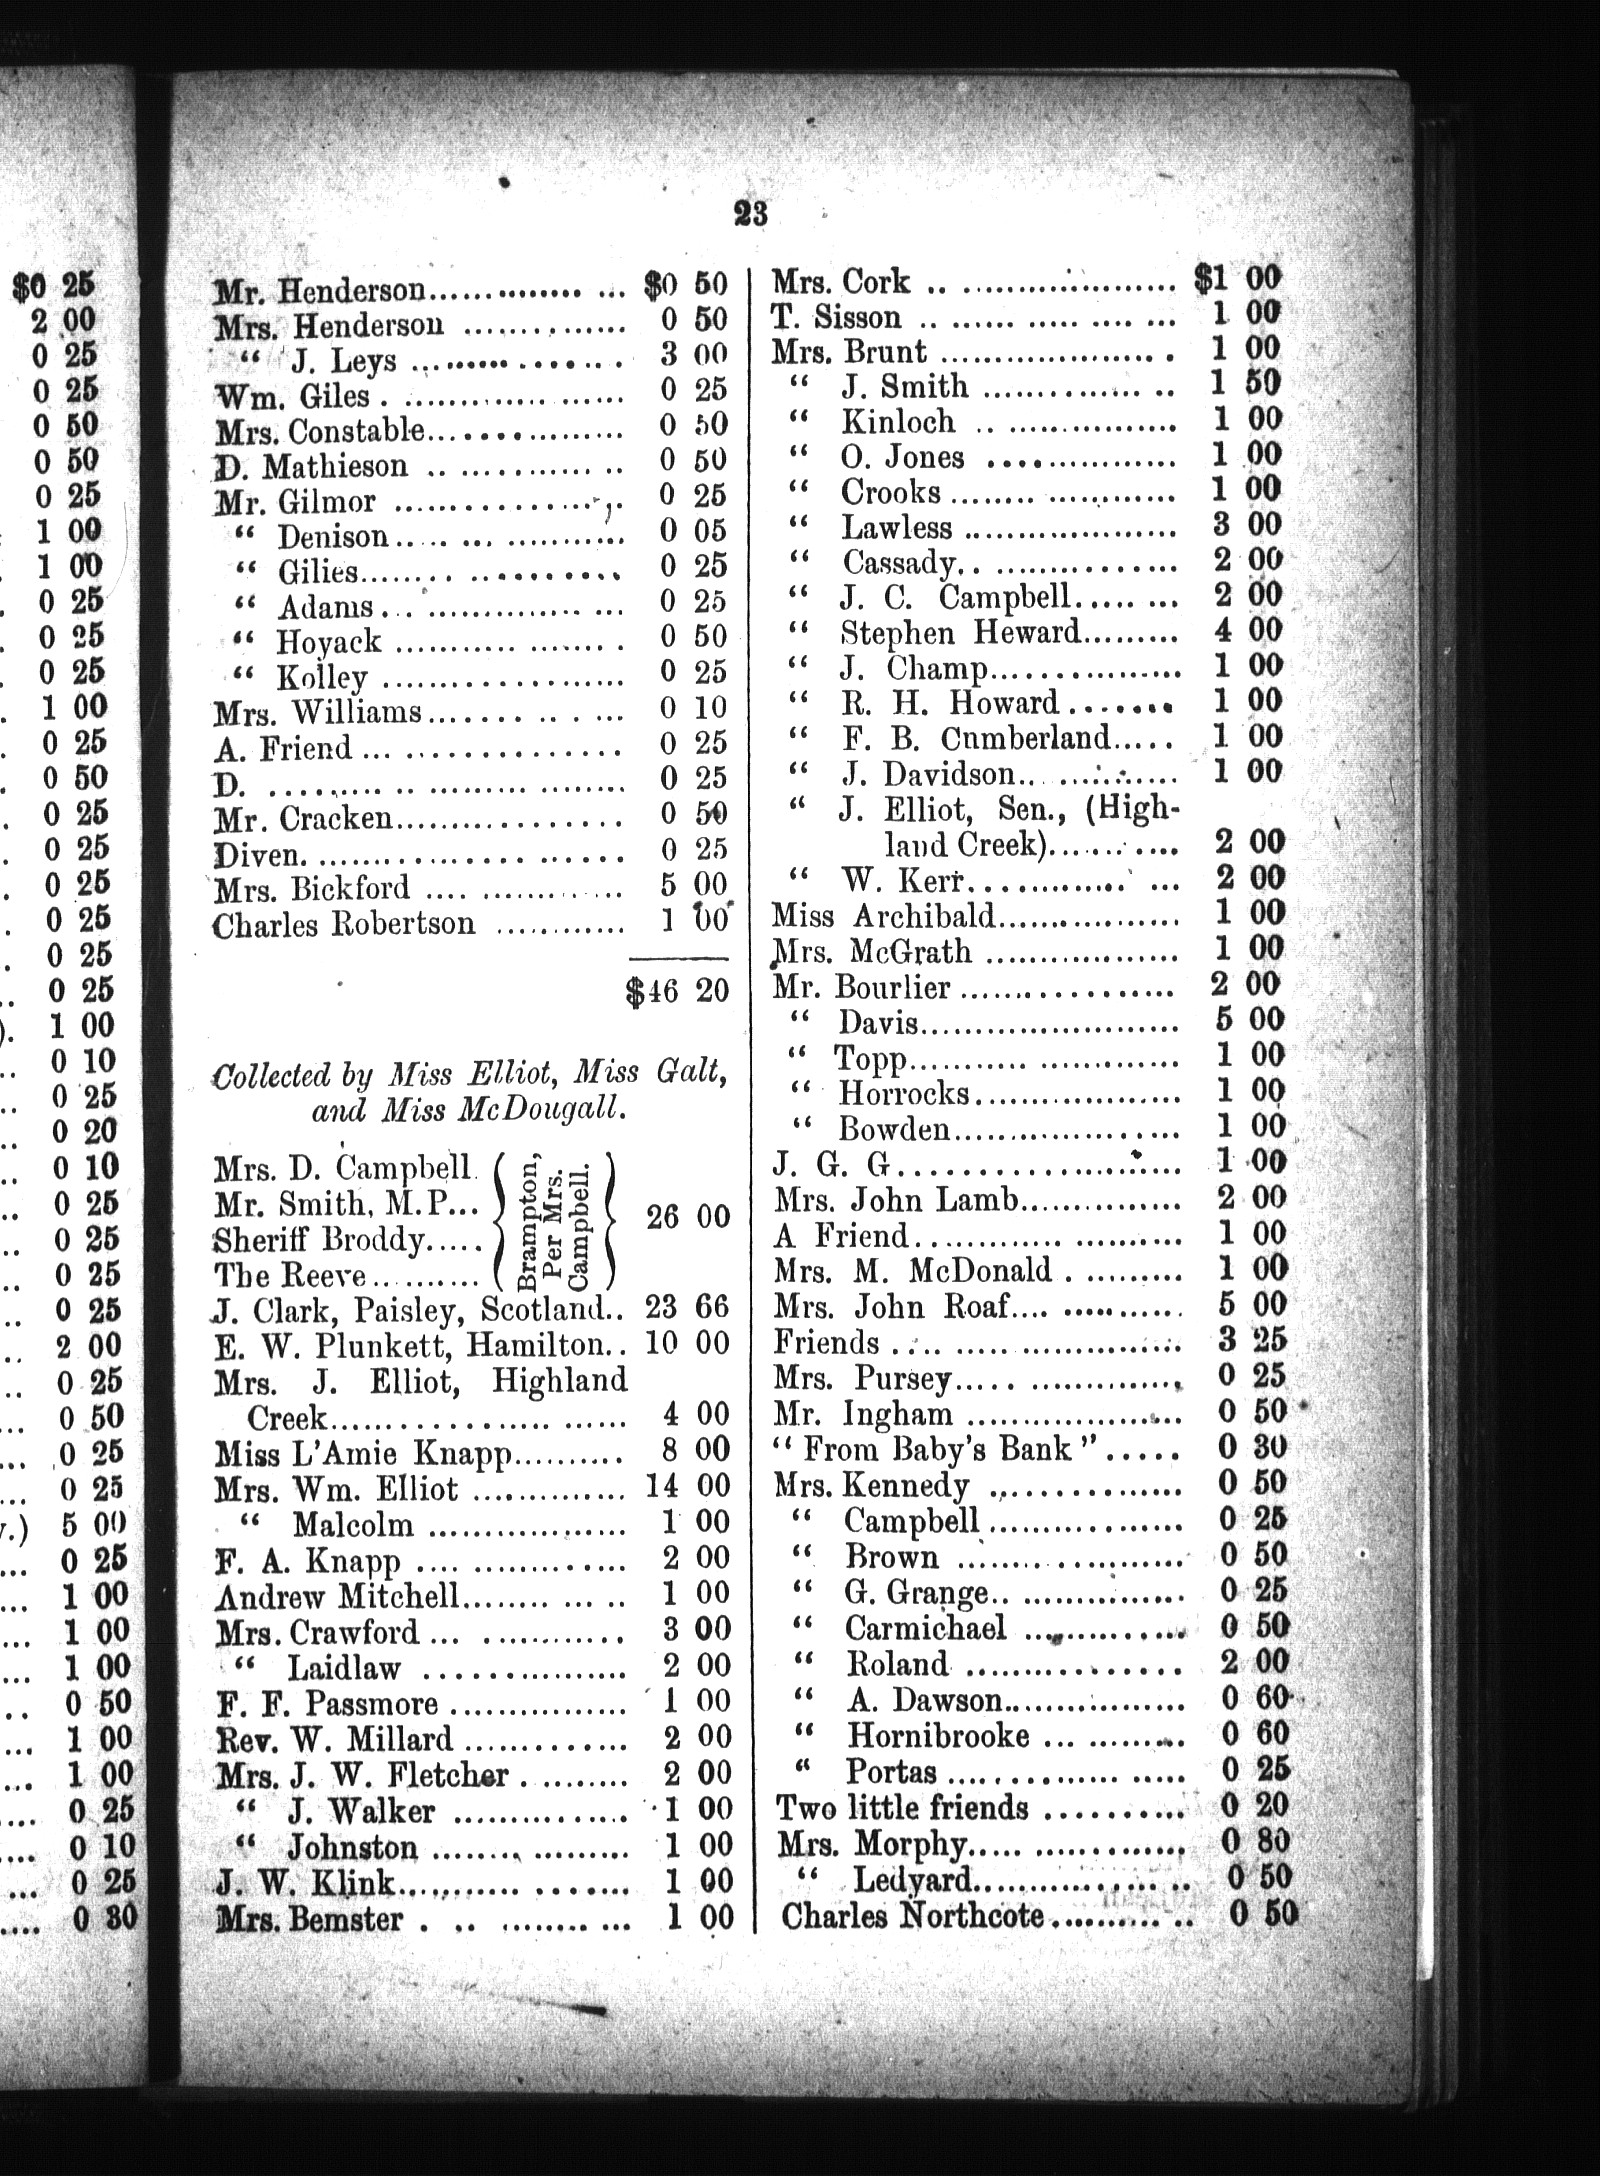 $0 25
2 00
0 25
0 25
0 50
0 50
0 25
1 00
1 00
0 25
0 25
0 25
1 00
0 25
0 50
0 25
0 25
0 25
0 25
0 25
0 25
). 1 00
0 10
0 25
0 20
0 10
0 25
0 25
0 25
0 25
2 00
0 25
0 50
0 25
0 25
.) 5 00
0 25
1 00
1 00
1 00
0 50
1 00
1 00
0 25
0 10
0 25
0 30
23
Mr. Henderson.................. $0 50
Mrs. Henderson .............. 0 50
“ J. Leys .................. 3 00
Wm. Giles . ................... 0 25
Mrs. Constable................. 0 50
D. Mathieson ................ 0 50
Mr. Gilmor .................. 0 25
“ Denison.................... 0 05
“ Gilies...................... 0 25
“ Adams.................... 0 25
“ Hoyack ................... 0 50
“ Kolley .................... 0 25
Mrs. Williams................. 0 10
A. Friend ................... 0 25
D. ........................... 0 25
Mr. Cracken.................. 0 50
Diven. ....................... 0 25
Mrs. Bickford ................ 5 00
Charles Robertson ............ 1 00
$46 20
Collected by Miss Elliot, Miss Galt,
and Miss McDougall.
Mrs. D. Campbell
Mr. Smith, M.P...
Sheriff Broddy.....
The Reeve...........
Brampton,
Per Mrs.
Campbell.
26 00
J. Clark, Paisley, Scotland.. 23 66
E. W. Plunkett, Hamilton.. 10 00
Mrs. J. Elliot, Highland
Creek........................ 4 00
Miss L'Amie Knapp.......... 8 00
Mrs. Wm. Elliot .............. 14 00
“ Malcolm .................. 1 00
F. A. Knapp .................. 2 00
Andrew Mitchell............... 1 00
Mrs. Crawford ................ 3 00
“ Laidlaw .................. 2 00
F. F. Passmore ................ 1 00
Rev. W. Millard .............. 2 00
Mrs. J. W. Fletcher . ......... 2 00
“ J. Walker ................ 1 00
“ Johnston .................. 1 00
J. W. Klink.................... 1 00
Mrs. Bemster . ............... 1 00
Mrs. Cork ...................... $1 00
T. Sisson ...................... 1 00
Mrs. Brunt ..................... 1 00
“ J. Smith .................. 1 50
“ Kinloch .................. 1 00
“ O. Jones .................. 1 00
“ Crooks .................... 1 00
“ Lawless .................... 3 00
“ Cassady.................... 2 00
“ J. C. Campbell........ 2 00
“ Stephen Heward......... 4 00
“ J. Champ................ 1 00
“ R. H. Howard....... 1 00
“ F. B. Cnmberland..... 1 00
“ J. Davidson............. 1 00
“ J. Elliot, Sen., (High-
land Creek)........... 2 00
“ W. Kerr.................. 2 00
Miss Archibald................. 1 00
Mrs. McGrath .................. 1 00
Mr. Bourlier ................... 2 00
“ Davis....................... 5 00
“ Topp........................ 1 00
“ Horrocks.................. 1 00
“ Bowden.................... 1 00
J. G. G......................... 1 00
Mrs. John Lamb............... 2 00
A Friend....................... 1 00
Mrs. M. McDonald . ......... 1 00
Mrs. John Roaf............... 5 00
Friends ......................... 3 25
Mrs. Pursey.................... 0 25
Mr. Ingham .................... 0 50
“ From Baby's Bank ”..... 0 30
Mrs. Kennedy ................. 0 50
“ Campbell.................. 0 25
“ Brown ..................... 0 50
“ G. Grange................. 0 25
“ Carmichael ............... 0 50
“ Roland .................... 2 00
“ A. Dawson................ 0 60
“ Hornibrooke ............. 0 60
“ Portas ..................... 0 25
Two little friends ........... 0 20
Mrs. Morphy.................. 0 80
“ Ledyard................... 0 50
Charles Northcote............ 0 50